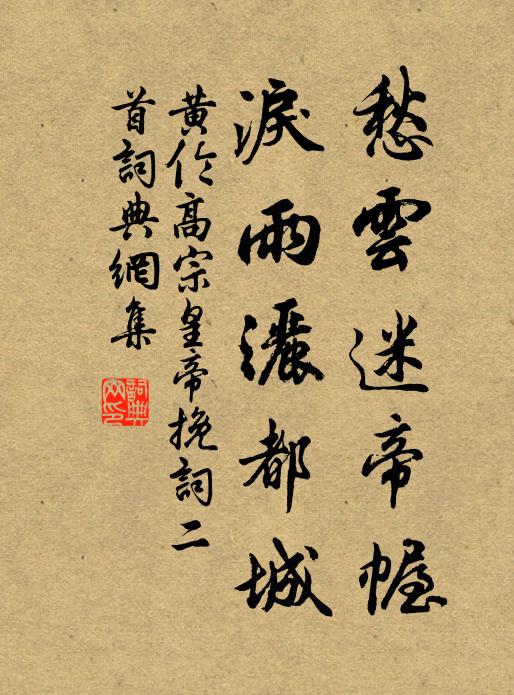 愁雲迷帝幄
淚雨灑都城
黃伦高宗皇帝挽詞二
首詞典網集